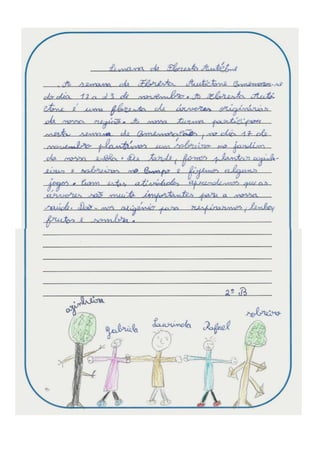 Semana da Floresta Autóctone
A semana da Floresta Autóctone comemora-se
do dia 17 a 23 de novembro. A Floresta Autó
ctone é uma floresta de árvores originárias
da nossa região. A nossa turma participou
nesta semana de comemorações, no dia 17 de
novembro plantámos um sobreiro no jardim
da nossa escola. De tarde, fomos plantar azinh-
eiras e sobreiros no Campo e fizemos alguns
jogos. Com estas atividades aprendemos que as
árvores são muito importantes para a nossa
saúde. Dão-nos oxigénio para respirarmos, lenha,
frutos e sombra.
2º B
azinheira
Gabriela
Laurinda
Rafael
sobreiro